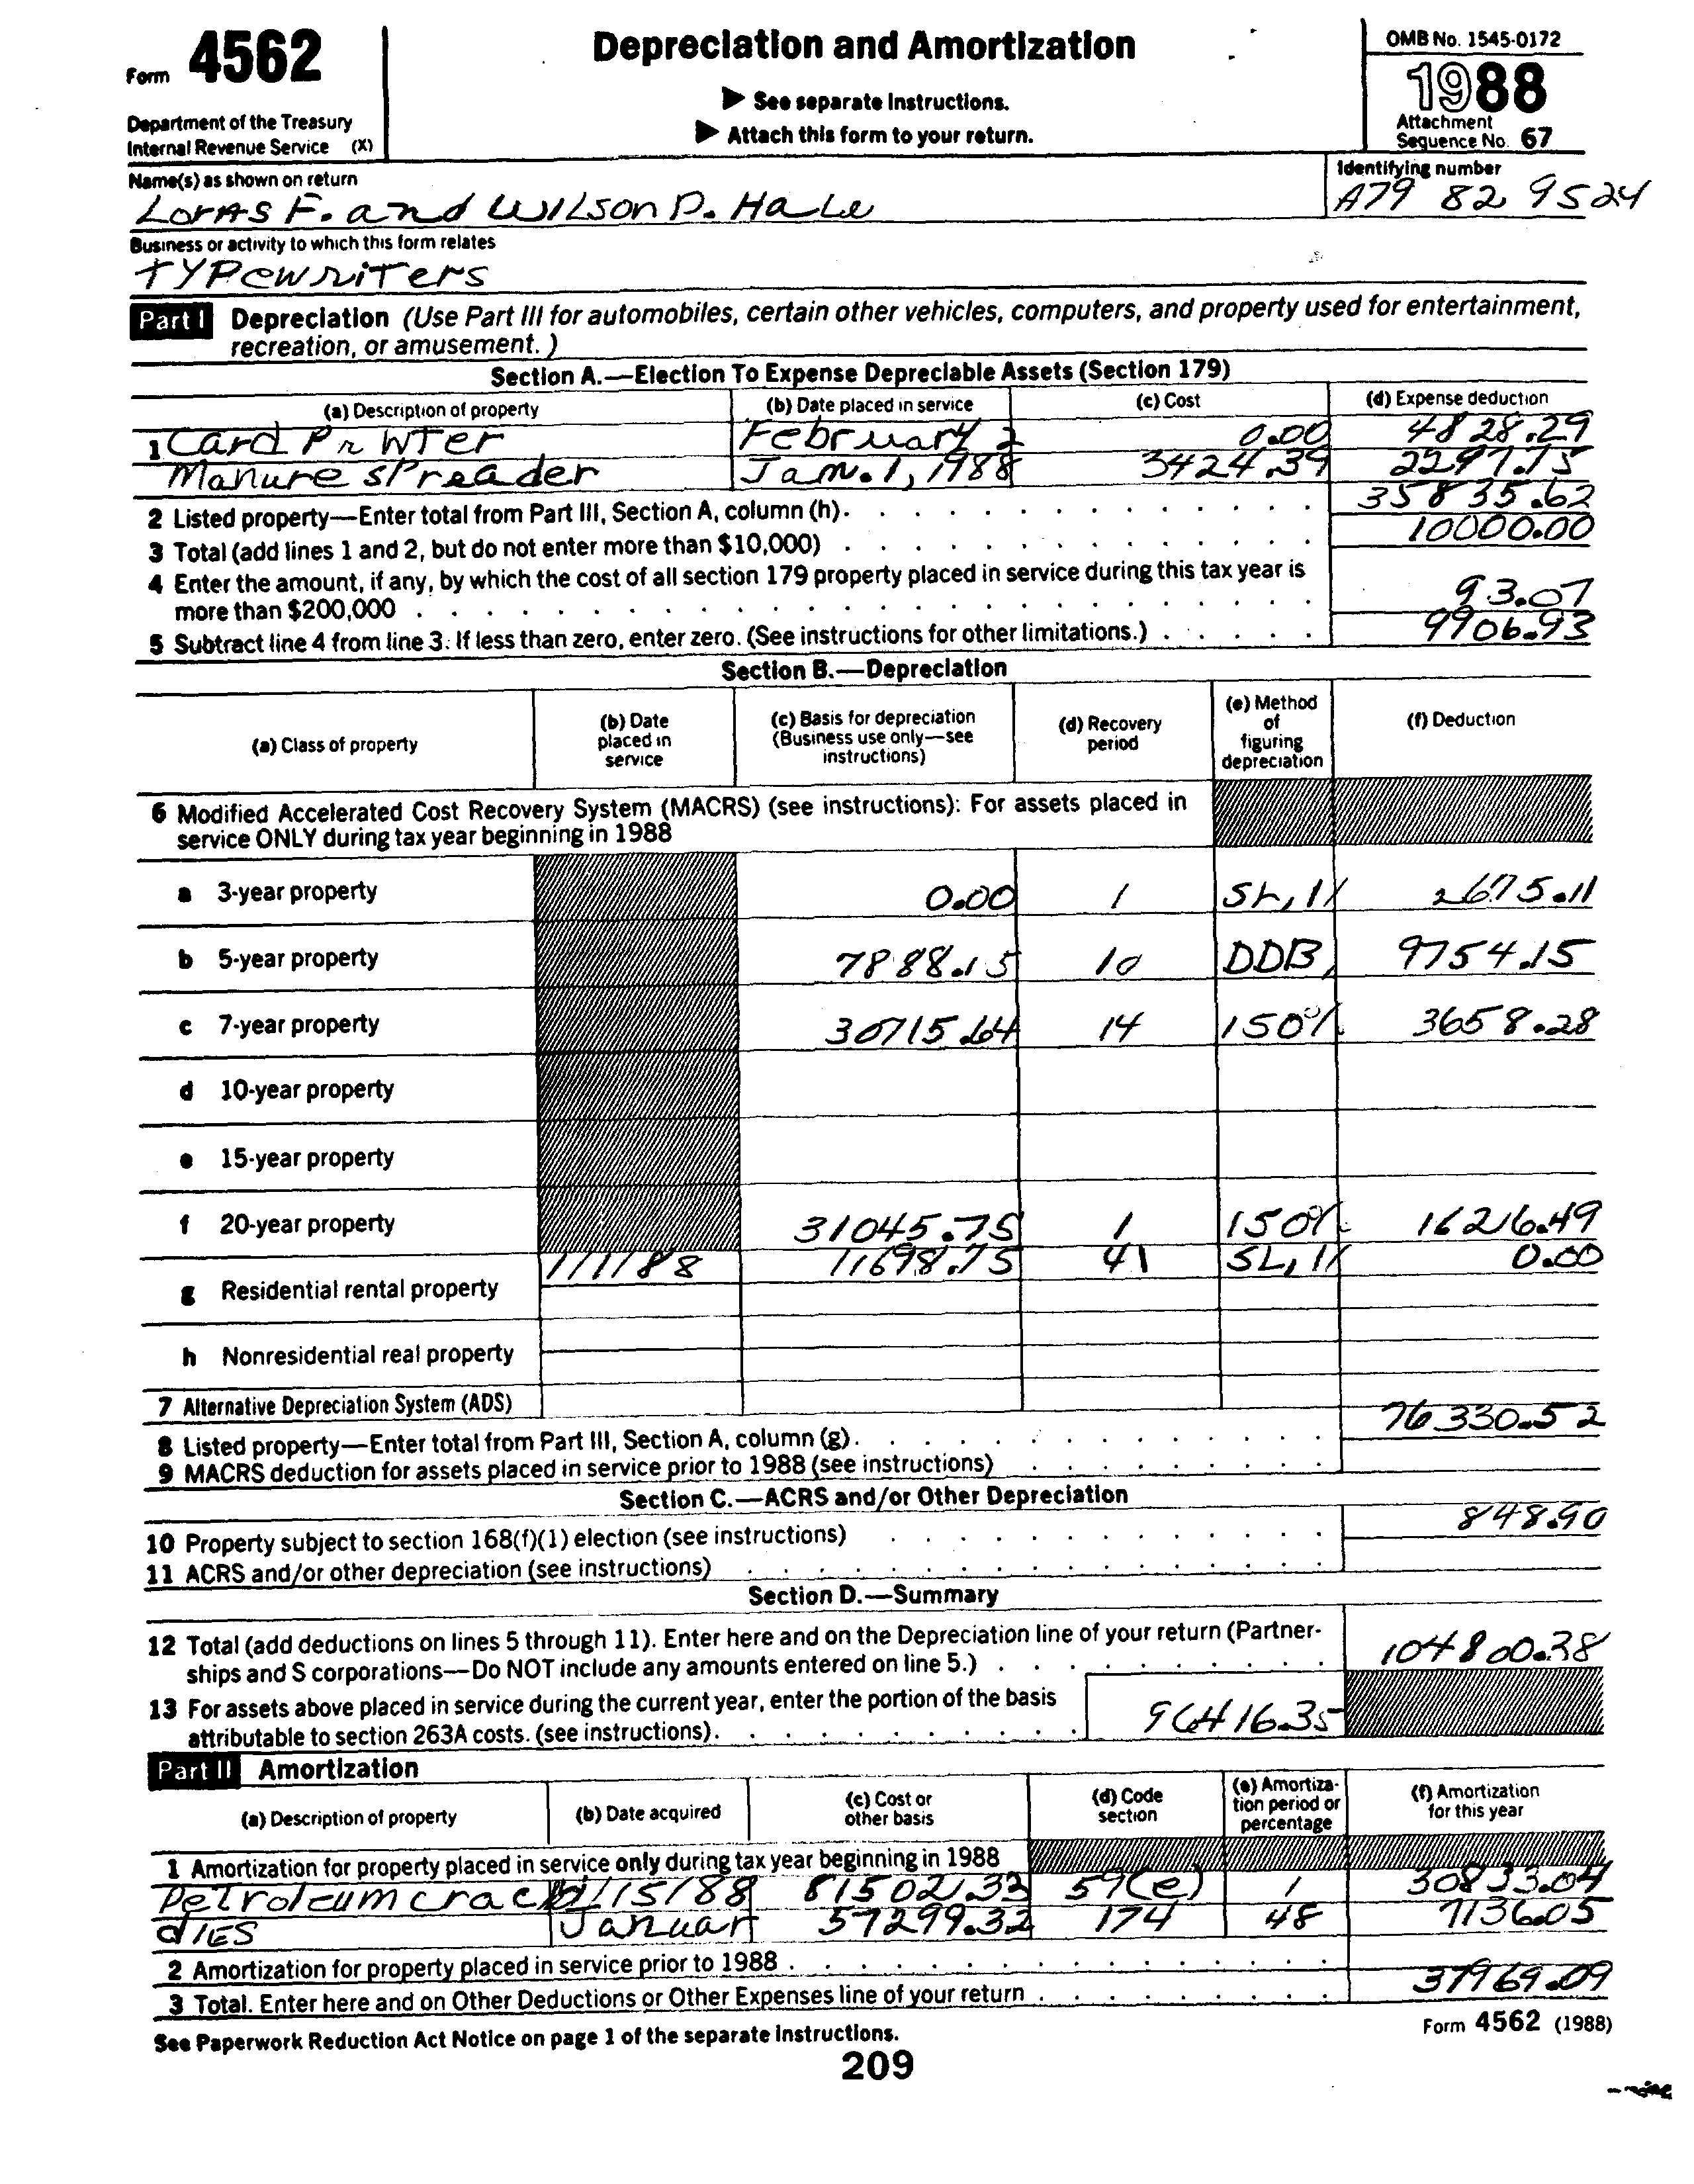 Form 4562
Department of the Treasury
Internal Revenue Service (X)
Depreciation and Amortization
▶ See separate Instructions.
▶ Attach this form to your return.
OMB No. 1545-0172
1988
Attachment
Sequence No. 67
Name(s) as shown on return
Identifying number
LorAS F. and WILSON D. HaLe
A79 82 9524
Business or activity to which this form relates
TYPewriTers
Part I Depreciation (Use Part III for automobiles, certain other vehicles, computers, and property used for entertainment,
recreation, or amusement.)
Section A.—Election To Expense Depreciable Assets (Section 179)
(a) Description of property (b) Date placed in service (c) Cost (d) Expense deduction
1 Card February 2 0.00 4828.29
Manure sPreader Jan. 1, 1988 3424.39 2297.75
2 Listed property—Enter total from Part III, Section A, column (h). 35835.62
3 Total (add lines 1 and 2, but do not enter more than $10,000) 10000.00
4 Enter the amount, if any, by which the cost of all section 179 property placed in service during this tax year is
more than $200,000 93.07
5 Subtract line 4 from line 3. If less than zero, enter zero. (See instructions for other limitations.) 9906.93
Section B.—Depreciation
(a) Class of property (b) Date placed in service (c) Basis for depreciation (Business use only—see instructions) (d) Recovery period (e) Method of figuring depreciation (f) Deduction
6 Modified Accelerated Cost Recovery System (MACRS) (see instructions): For assets placed in
service ONLY during tax year beginning in 1988
a 3-year property 0.00 1 2675.11
b 5-year property 7888.15 10 DDB, 9754.15
c 7-year property 30715.64 14 150% 3658.28
d 10-year property
e 15-year property
f 20-year property 31045.75 1 150% 16216.49
1/1/88 11698.75 41 0.00
g Residential rental property
h Nonresidential real property
7 Alternative Depreciation System (ADS)
8 Listed property—Enter total from Part III, Section A, column (g). 76330.52
9 MACRS deduction for assets placed in service prior to 1988 (see instructions)
Section C.—ACRS and/or Other Depreciation
10 Property subject to section 168(f)(1) election (see instructions) 848.90
11 ACRS and/or other depreciation (see instructions)
Section D.—Summary
12 Total (add deductions on lines 5 through 11). Enter here and on the Depreciation line of your return (Partner-
ships and S corporations—Do NOT include any amounts entered on line 5.) 104800.38
13 For assets above placed in service during the current year, enter the portion of the basis
attributable to section 263A costs. (see instructions). 96416.35
Part II Amortization
(a) Description of property (b) Date acquired (c) Cost or other basis (d) Code section (e) Amortiza-tion period or percentage (f) Amortization for this year
1 Amortization for property placed in service only during tax year beginning in 1988
Petroleum 81502.33 59(e) 1 30833.04
dIES Januar 57299.32 174 48 7136.05
2 Amortization for property placed in service prior to 1988
3 Total. Enter here and on Other Deductions or Other Expenses line of your return 37969.09
See Paperwork Reduction Act Notice on page 1 of the separate instructions.
Form 4562 (1988)
209